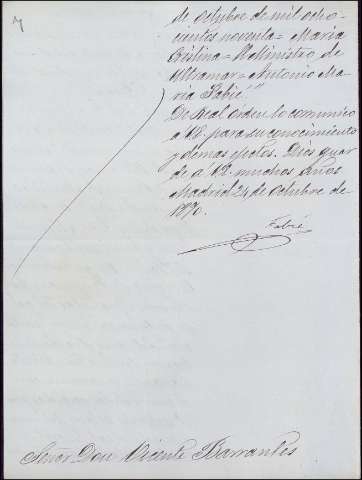 de octubre de mil ocho-
cientos noventa = Maria
Cristina = El Ministro de
Ultramar = Antonio Ma-
ria Fabié"
De Real órden lo comunico
a V.S. para su conocimiento
y demas efectos. Dios guar-
de á V.S. muchos años
Madrid 24 de Octubre de
1890.
Fabié
Señor Don Vicente Barrantes